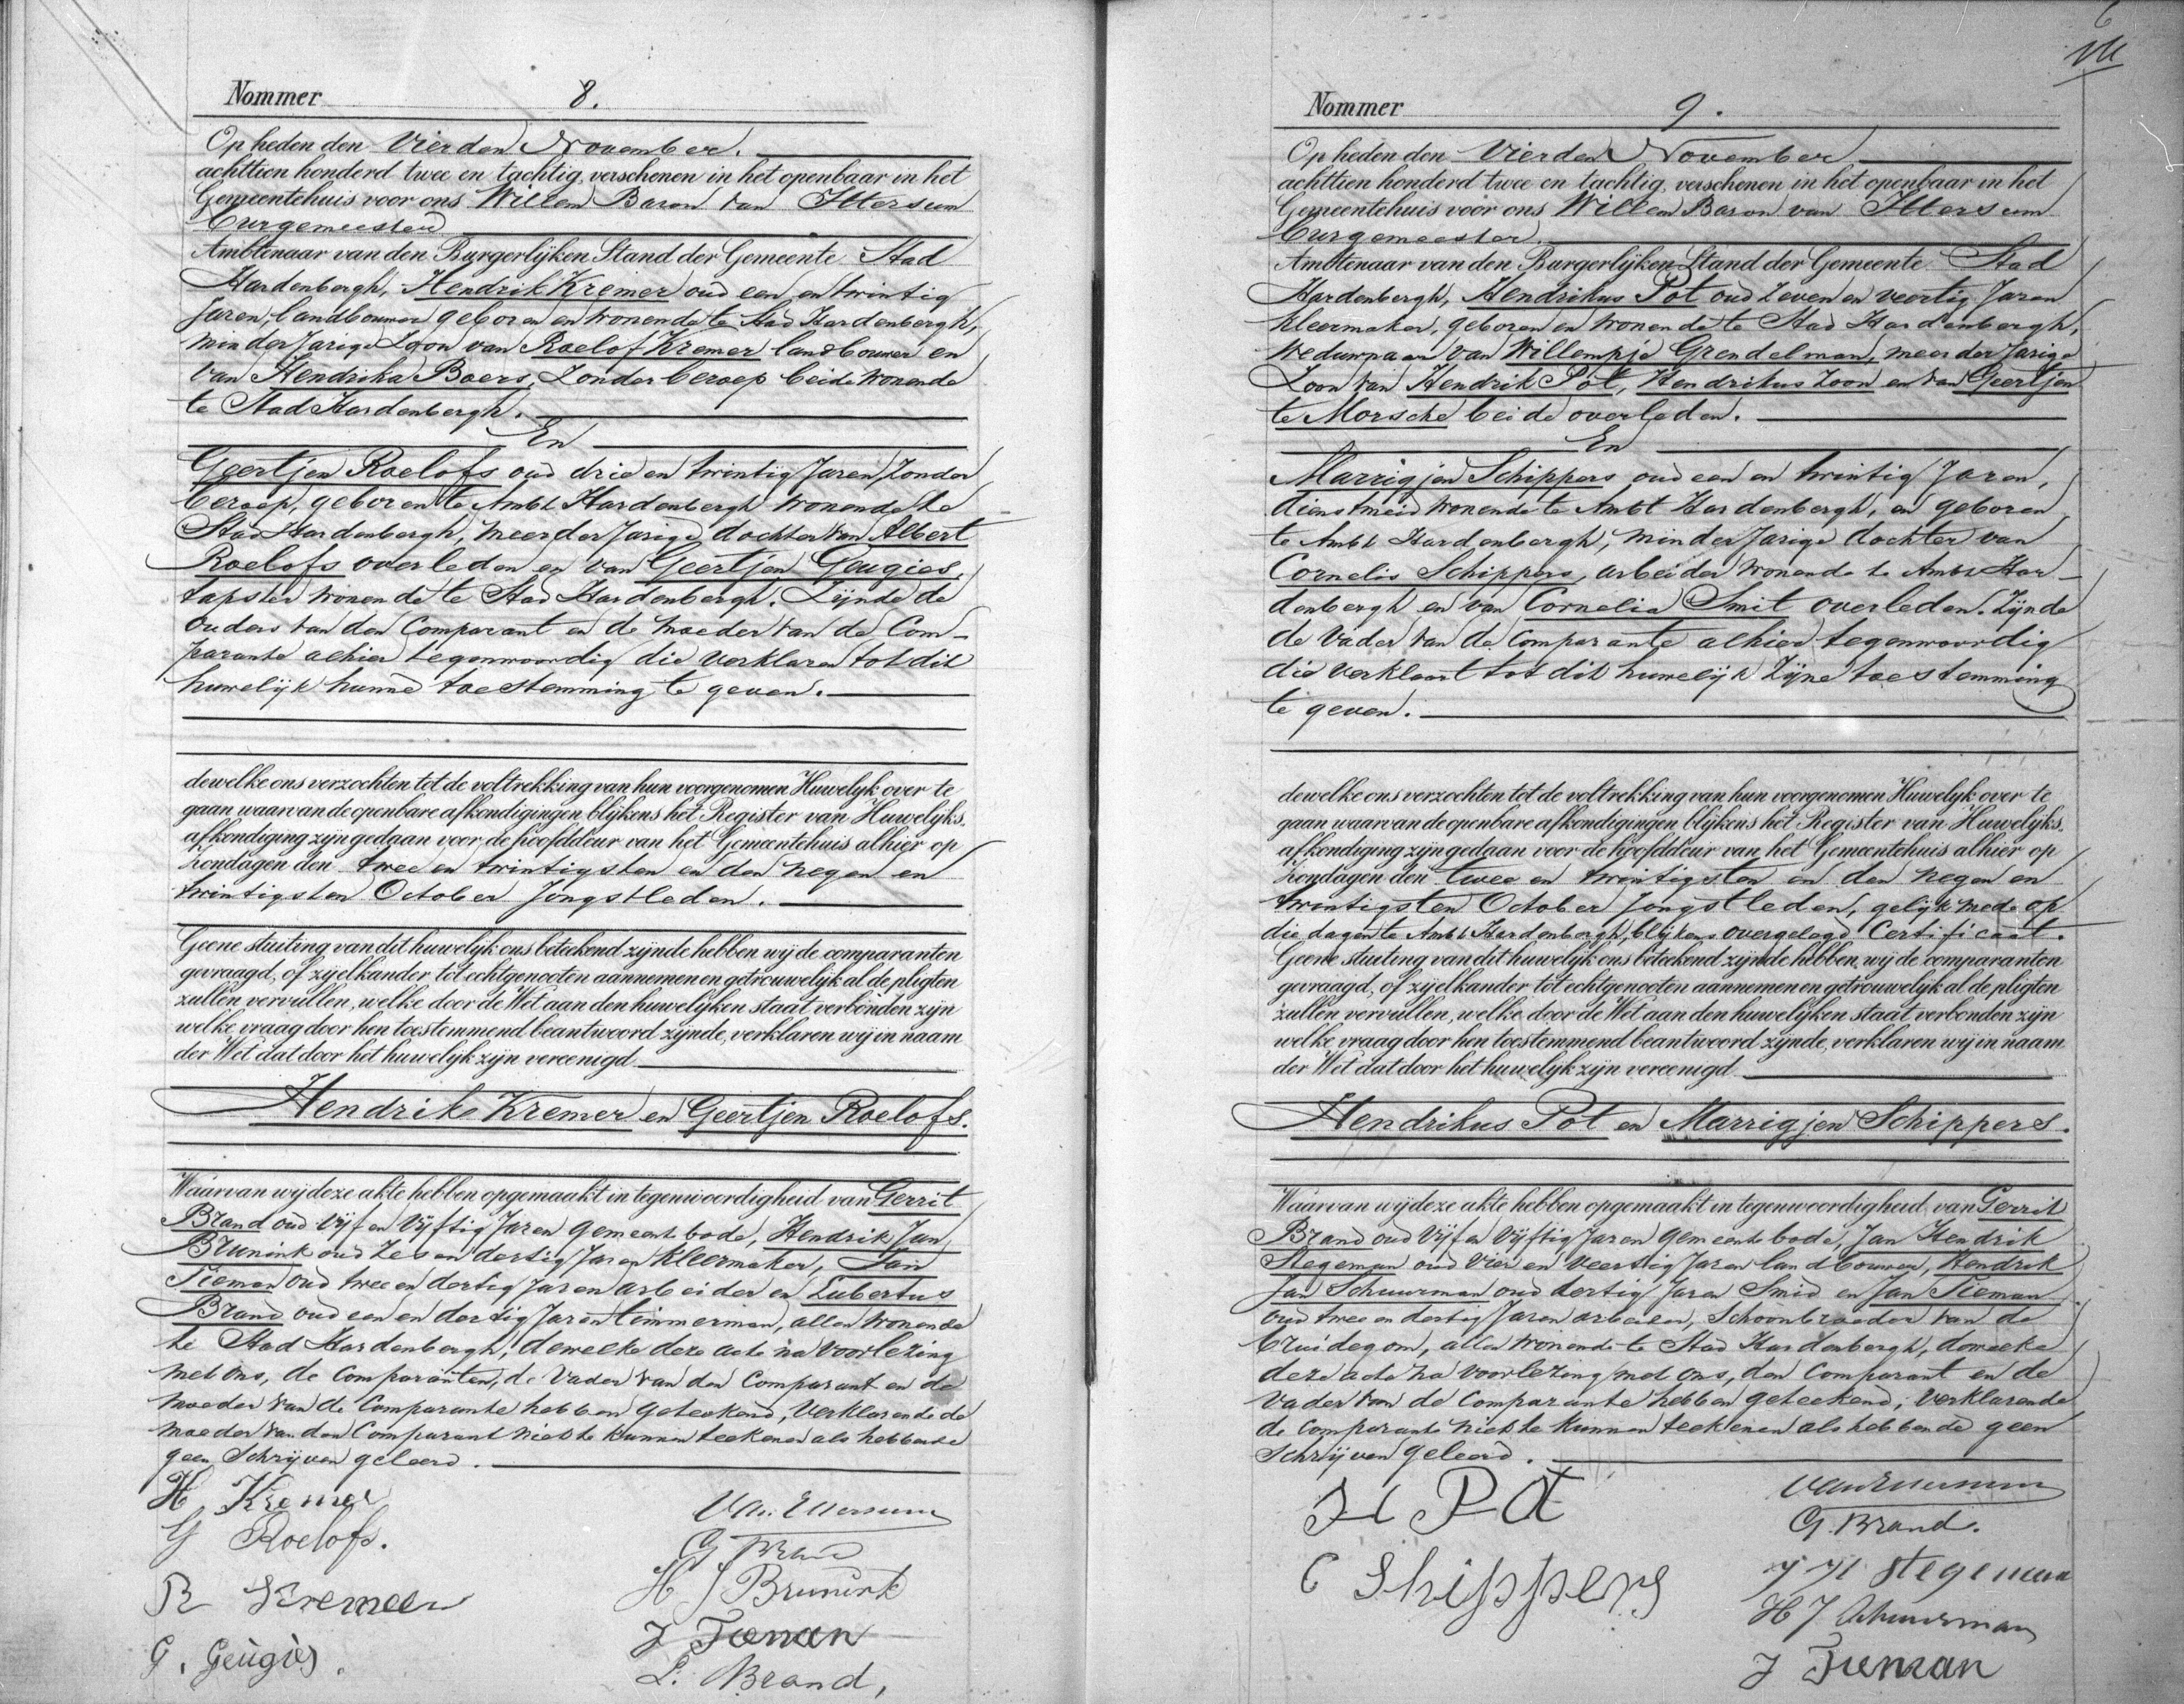 Nommer 8.
Op heden den Vierden November.
achttien honderd twee en tachtig, verschenen in het openbaar in het
Gemeentehuis voor ons Willem Baron van Ittersum
burgemeester
Ambtenaar van den Burgerlijken Stand der Gemeente Stad
Hardenbergh, Hendrik Kremer oud een en twintig
Jaren, landbouwer geboren en wonende te Stad Hardenbergh,
minderjarige Zoon van Roelof Kremer landbouwer en
van Hendrika Boers, Zonder beroep beide wonende
te Stad Hardenbergh.
En
Geertjen Roelofs oud drie en twintig Jaren, Zonder
beroep, geboren te Ambt Hardenbergh wonende te
Stad Hardenbergh, meerderjarige dochter van Albert
Roelofs overleden en van Geertjen Geugies,
tapster wonende te Stad Hardenbergh. Zijnde de
ouders van den Comparant en de moeder van de Com-
parante alhier tegenwoordig die verklaren tot dit
huwelijk hunne toestemming te geven.
dewelke ons verzochten tot de voltrekking van hun voorgenomen Huwelijk over te
gaan waarvan de openbare afkondigingen blijkens het Register van Huwelijks-
afkondiging zijn gedaan voor de hoofddeur van het Gemeentehuis alhier op
Zondagen den twee en twintigsten en den negen en
twintigsten October Jongstleden.
Geene stuiting van dit huwelijk ons beteekend zijnde hebben wij de comparanten
gevraagd, of zij elkander tot echtgenooten aannemen en getrouwelijk al de pligten
zullen vervullen, welke door de Wet aan den huwelijken staat verbonden zijn
welke vraag door hen toestemmend beantwoord zijnde, verklaren wij in naam
der Wet dat door het huwelijk zijn vereenigd
Hendrik Kremer en Geertjen Roelofs.
Waarvan wij deze akte hebben opgemaakt in tegenwoordigheid van Gerrit
Brand oud vijf en vijftig Jaren gemeentebode, Hendrik Jan
Brunink oud zes en dertig Jaren kleermaker, Jan
Tieman oud twee en dertig Jaren arbeider en Lubertus
Brand oud een en dertig Jaren timmerman, allen wonende
te Stad Hardenbergh, dewelke deze acte na voorlezing
met ons, de Comparanten, de Vader van den Comparant en de
moeder van de Comparante hebben geteekend, Verklarende de
moeder van den Comparant niet te kunnen teekenen als hebbende
geen Schrijven geleerd.
H, Kremer
G Roelofs.
R Kremeer
G. Geugies.
Van Ittersum
G Brand
H J Brunink
J Tieman
L. Brand,
Nommer 9.
Op heden den Vierden November
achttien honderd twee en tachtig, verschenen in het openbaar in het
Gemeentehuis voor ons Willem Baron van Ittersum
burgemeester.
Ambtenaar van den Burgerlijken Stand der Gemeente Stad
Hardenbergh, Hendrikus Pot oud Zeven en veertig Jaren
kleermaker, geboren en wonende te Stad Hardenbergh,
Weduwnaar van Willempje Grendelman, meerderjarige
Zoon van Hendrik Pot, Hendrikus Zoon en van Geertjen
te Morsche beide overleden.
En
Marrigjen Schippers oud een en twintig Jaren,
dienstmeid wonende te Ambt Hardenbergh, en geboren
te Ambt Hardenbergh, minderjarige dochter van
Cornelis Schippers, arbeider wonende te Ambt Har-
denbergh en van Cornelia Smit overleden. Zijnde
de Vader van de Comparante alhier tegenwoordig
die verklaart tot dit huwelijk Zijne toestemming
te geven.
dewelke ons verzochten tot de voltrekking van hun voorgenomen Huwelijk over te
gaan waarvan de openbare afkondigingen blijkens het Register van Huwelijks-
afkondiging zijn gedaan voor de hoofddeur van het Gemeentehuis alhier op
Zondagen den twee en twintigsten en den negen en
twintigsten October Jongstleden, gelijk mede op
die dagen te Ambt Hardenbergh, blijkens overgelegd Certificaat.
Geene stuiting van dit huwelijk ons beteekend zijnde hebben, wij de comparanten
gevraagd, of zij elkander tot echtgenooten aannemen en getrouwelijk al de pligten
zullen vervullen, welke door de Wet aan den huwelijken staat verbonden zijn
welke vraag door hen toestemmend beantwoord zijnde, verklaren wij in naam
der Wet dat door het huwelijk zijn vereenigd
Hendrikus Pot en Marrigjen Schippers.
Waarvan wij deze akte hebben opgemaakt in tegenwoordigheid van Gerrit
Brand oud vijf en vijftig Jaren gemeentebode, Jan Hendrik
Stegeman oud Vier en Veertig Jaren landbouwer, Hendrik
Jan Schuurman oud dertig Jaren Smid en Jan Tieman
oud twee en dertig Jaren arbeider, Schoonbroeder van de
bruidegom, allen wonende te Stad Hardenbergh, dewelke
deze acte na voorlezing met ons, den Comparant en de
vader van de Comparante hebben geteekend; Verklarende
de Comparante niet te kunnen teekenen als hebbende geen
Schrijven geleerd.
H Pot
C Shippers
Van Ittersum
G. Brand.
J H Stegeman
H J Schuurman
J Tieman